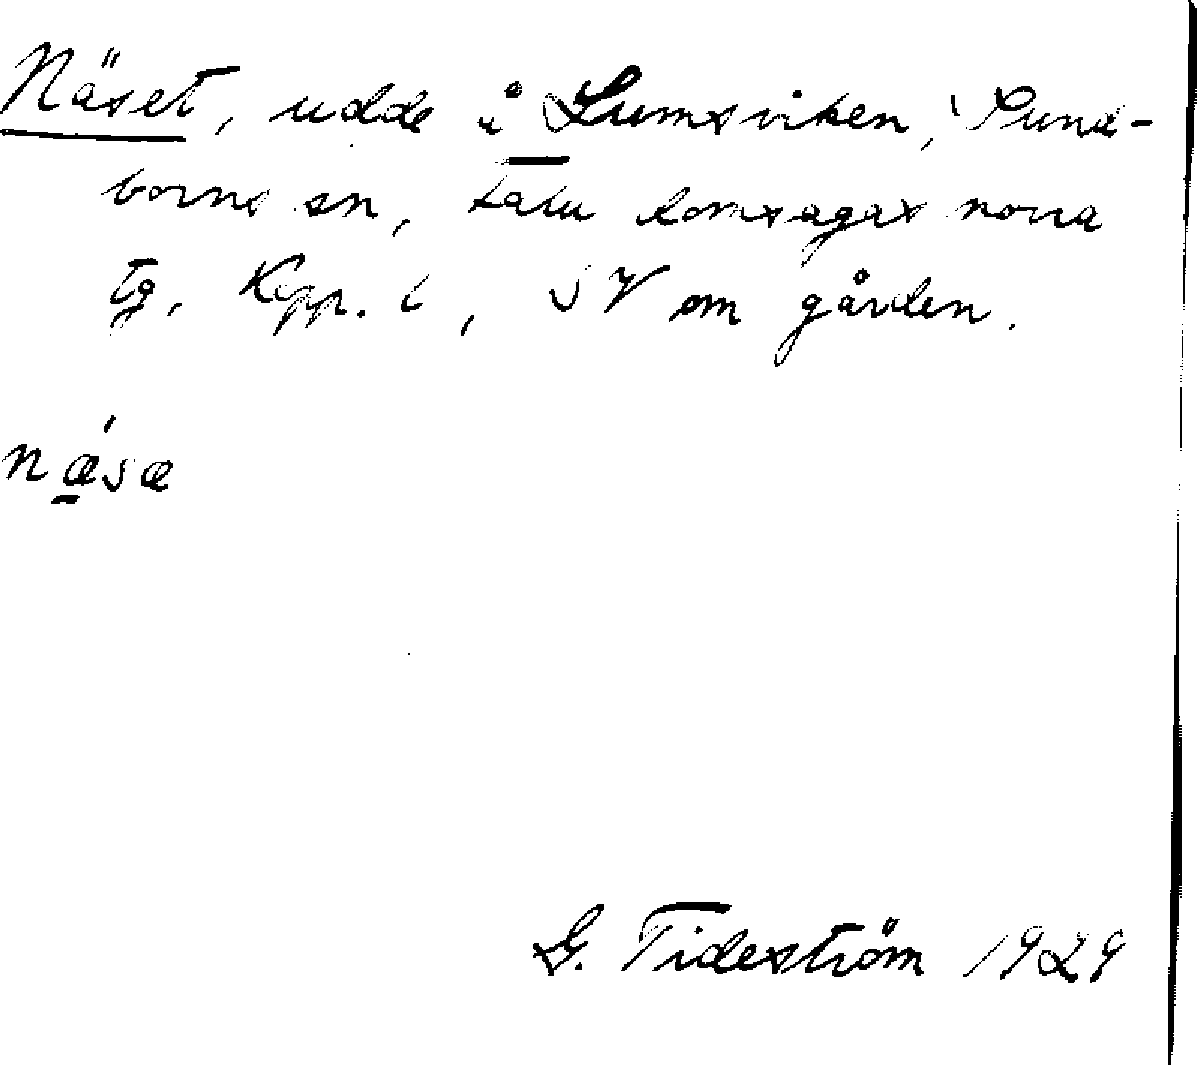 Näset, udde i Lumsviken, Sund-
borns sn, Falu domsagas norra
tg. Kppr. l, SV om gården.
nǽ̱sæ
G. Tideström 1929